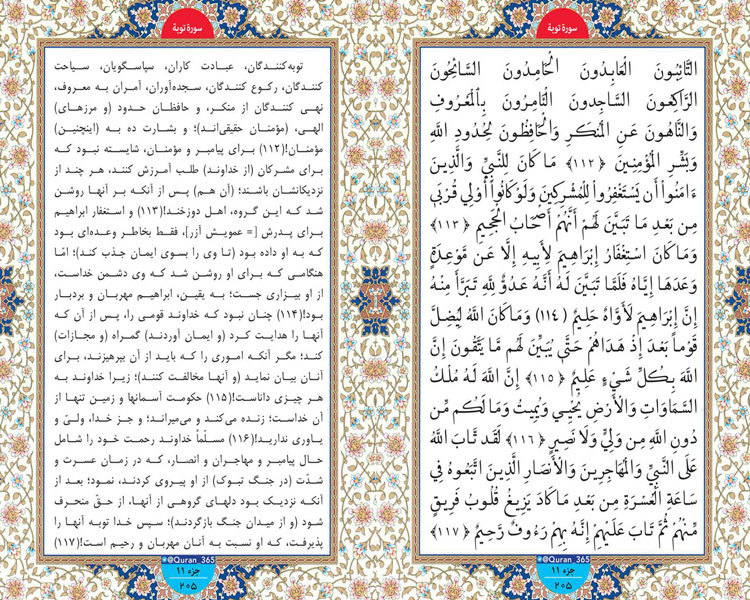 سورهٔ توبة
التَّائِبُونَ الْعَابِدُونَ الْحَامِدُونَ السَّائِحُونَ
الرَّاكِعُونَ السَّاجِدُونَ الْآمِرُونَ بِالْمَعْرُوفِ
وَالنَّاهُونَ عَنِ الْمُنكَرِ وَالْحَافِظُونَ لِحُدُودِ اللَّهِ
وَبَشِّرِ الْمُؤْمِنِينَ ﴿۱۱۲﴾ مَا كَانَ لِلنَّبِيِّ وَالَّذِينَ
ءَامَنُوا أَن يَسْتَغْفِرُوا لِلْمُشْرِكِينَ وَلَوْ كَانُوا أُولِي قُرْبَىٰ
مِن بَعْدِ مَا تَبَيَّنَ لَهُمْ أَنَّهُمْ أَصْحَابُ الْجَحِيمِ ﴿۱۱۳﴾
وَمَا كَانَ اسْتِغْفَارُ إِبْرَاهِيمَ لِأَبِيهِ إِلَّا عَن مَّوْعِدَةٍ
وَعَدَهَا إِيَّاهُ فَلَمَّا تَبَيَّنَ لَهُ أَنَّهُ عَدُوٌّ لِلَّهِ تَبَرَّأَ مِنْهُ
إِنَّ إِبْرَاهِيمَ لَأَوَّاهٌ حَلِيمٌ ﴿۱۱۴﴾ وَمَا كَانَ اللَّهُ لِيُضِلَّ
قَوْمًا بَعْدَ إِذْ هَدَاهُمْ حَتَّىٰ يُبَيِّنَ لَهُم مَّا يَتَّقُونَ إِنَّ
اللَّهَ بِكُلِّ شَيْءٍ عَلِيمٌ ﴿۱۱۵﴾ إِنَّ اللَّهَ لَهُ مُلْكُ
السَّمَاوَاتِ وَالْأَرْضِ يُحْيِي وَيُمِيتُ وَمَا لَكُم مِّن
دُونِ اللَّهِ مِن وَلِيٍّ وَلَا نَصِيرٍ ﴿۱۱۶﴾ لَقَد تَّابَ اللَّهُ
عَلَى النَّبِيِّ وَالْمُهَاجِرِينَ وَالْأَنصَارِ الَّذِينَ اتَّبَعُوهُ فِي
سَاعَةِ الْعُسْرَةِ مِن بَعْدِ مَا كَادَ يَزِيغُ قُلُوبُ فَرِيقٍ
مِّنْهُمْ ثُمَّ تَابَ عَلَيْهِمْ إِنَّهُ بِهِمْ رَءُوفٌ رَّحِيمٌ ﴿۱۱۷﴾
@Quran_365
جزء ۱۱
۲۰۵
سورهٔ توبة
توبه‌کنندگان، عبادت کاران، سپاسگویان، سیاحت
کنندگان، رکوع کنندگان، سجده‌آوران، آمران به معروف،
نهی کنندگان از منکر، و حافظان حدود (و مرزهای)
الهی، (مؤمنان حقیقی‌اند)؛ و بشارت ده به (اینچنین)
مؤمنان!(۱۱۲) برای پیامبر و مؤمنان، شایسته نبود که
برای مشرکان (از خداوند) طلب آمرزش کنند، هر چند از
نزدیکانشان باشند؛ (آن هم) پس از آنکه بر آنها روشن
شد که این گروه، اهل دوزخند!(۱۱۳) و استغفار ابراهیم
برای پدرش [= عمویش آزر]، فقط بخاطر وعده‌ای بود
که به او داده بود (تا وی را بسوی ایمان جذب کند)؛ امّا
هنگامی که برای او روشن شد که وی دشمن خداست،
از او بیزاری جست؛ به یقین، ابراهیم مهربان و بردبار
بود!(۱۱۴) چنان نبود که خداوند قومی را، پس از آن که
آنها را هدایت کرد (و ایمان آوردند) گمراه (و مجازات)
کند؛ مگر آنکه اموری را که باید از آن بپرهیزند، برای
آنان بیان نماید (و آنها مخالفت کنند)؛ زیرا خداوند به
هر چیزی داناست!(۱۱۵) حکومت آسمانها و زمین تنها از
آن خداست؛ زنده می‌کند و می‌میراند؛ و جز خدا، ولیّ و
یاوری ندارید!(۱۱۶) مسلّماً خداوند رحمت خود را شامل
حال پیامبر و مهاجران و انصار، که در زمان عسرت و
شدّت (در جنگ تبوک) از او پیروی کردند، نمود؛ بعد از
آنکه نزدیک بود دلهای گروهی از آنها، از حقّ منحرف
شود (و از میدان جنگ بازگردند)؛ سپس خدا توبه آنها را
پذیرفت، که او نسبت به آنان مهربان و رحیم است!(۱۱۷)
@Quran_365
جزء ۱۱
۲۰۵